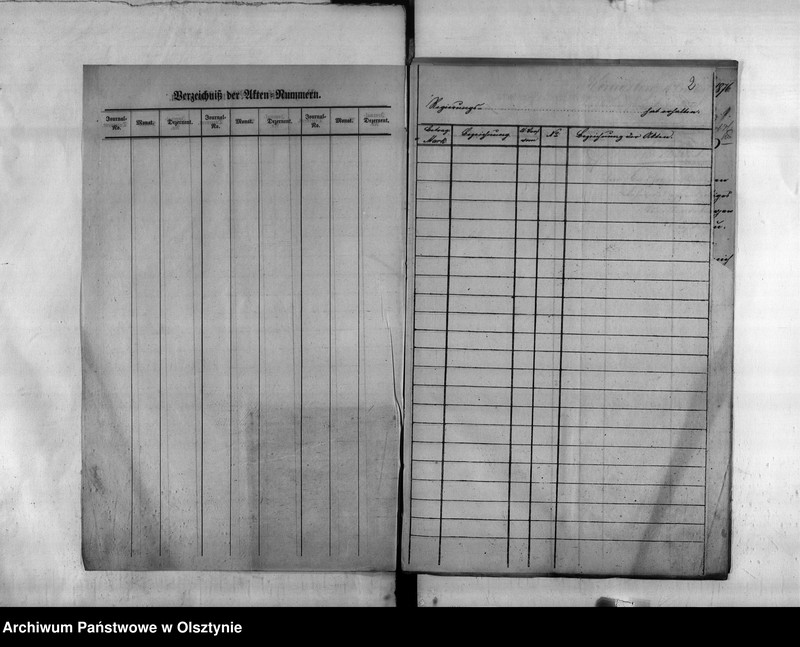 Verzeichniß der Akten-Nummern.
Journal-No. Monat. Dezernent. Journal-No. Monat. Dezernent. Journal-No. Monat. Dezernent.
2
Regierungs- hat erhalten
Betrag Mark. Bezeichnung No Bezeichnung der Akten.
1876
Archiwum Państwowe w Olsztynie